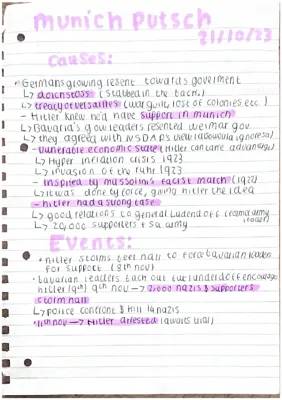 munich Putsch
21/10/23
Causes:
• Germans growing resent towards goverment
↳ dolchstoss (stabbed in the back)
↳ treaty of versailles (war guilt, lost of colonies etc.)
- Hitler knew he'd have support in munich
↳ Bavaria's gov leaders resented weimar gov
↳ they agreed with NSDAPs views
- vunerable economic state (Hitler can take advantage)
↳ Hyper inflation crisis 1923
↳ invasion of the ruhr 1923
- inspired by mussolini's facist march (1922)
↳ it was done by force, giving hitler the idea
- hitler had a strong base
↳ good relations to general ludendorff
↳ 20,000 supporters + sa army
Events:
• hitler storms beer hall to force bavarian leaders
for support (8th nov)
• bavarian leaders back out but ludendorff encourage
hitler (9th) 9th nov → 2,000 nazis & supporters
storm hall
↳ police confront & kill 14 nazis
• 11th nov → Hitler arrested (awaits trial)